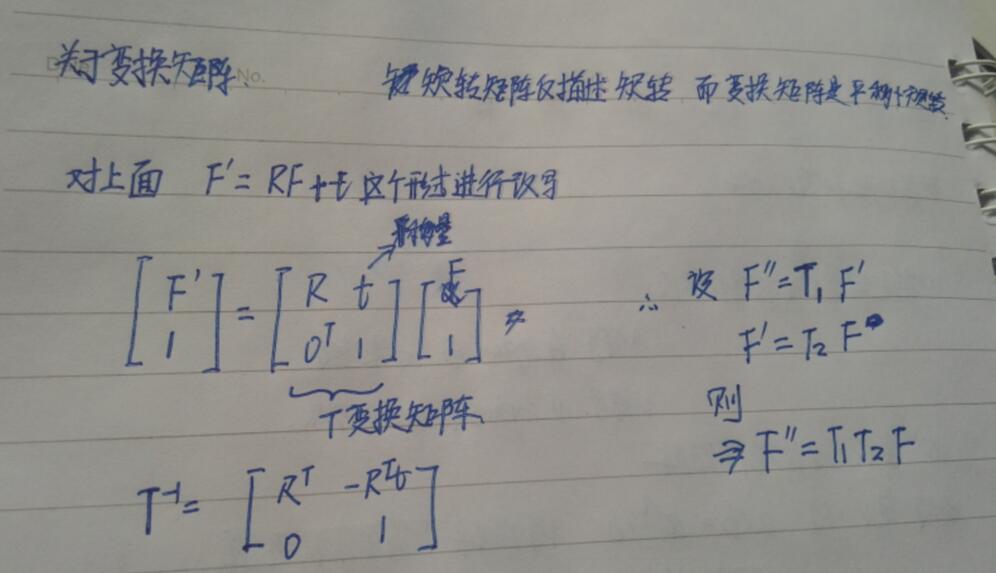 关于变换矩阵、 No.
旋转矩阵仅描述旋转 而变换矩阵是平移+旋转
对上面 F' = RF + t 这个形式进行改写
平移量
[F' 1] = [R t 0ᵀ 1] [F 1]
T变换矩阵
T⁻¹ = [Rᵀ -Rᵀt 0 1]
∴ 设 F'' = T₁ F'
F' = T₂ F
则
⇒ F'' = T₁T₂ F